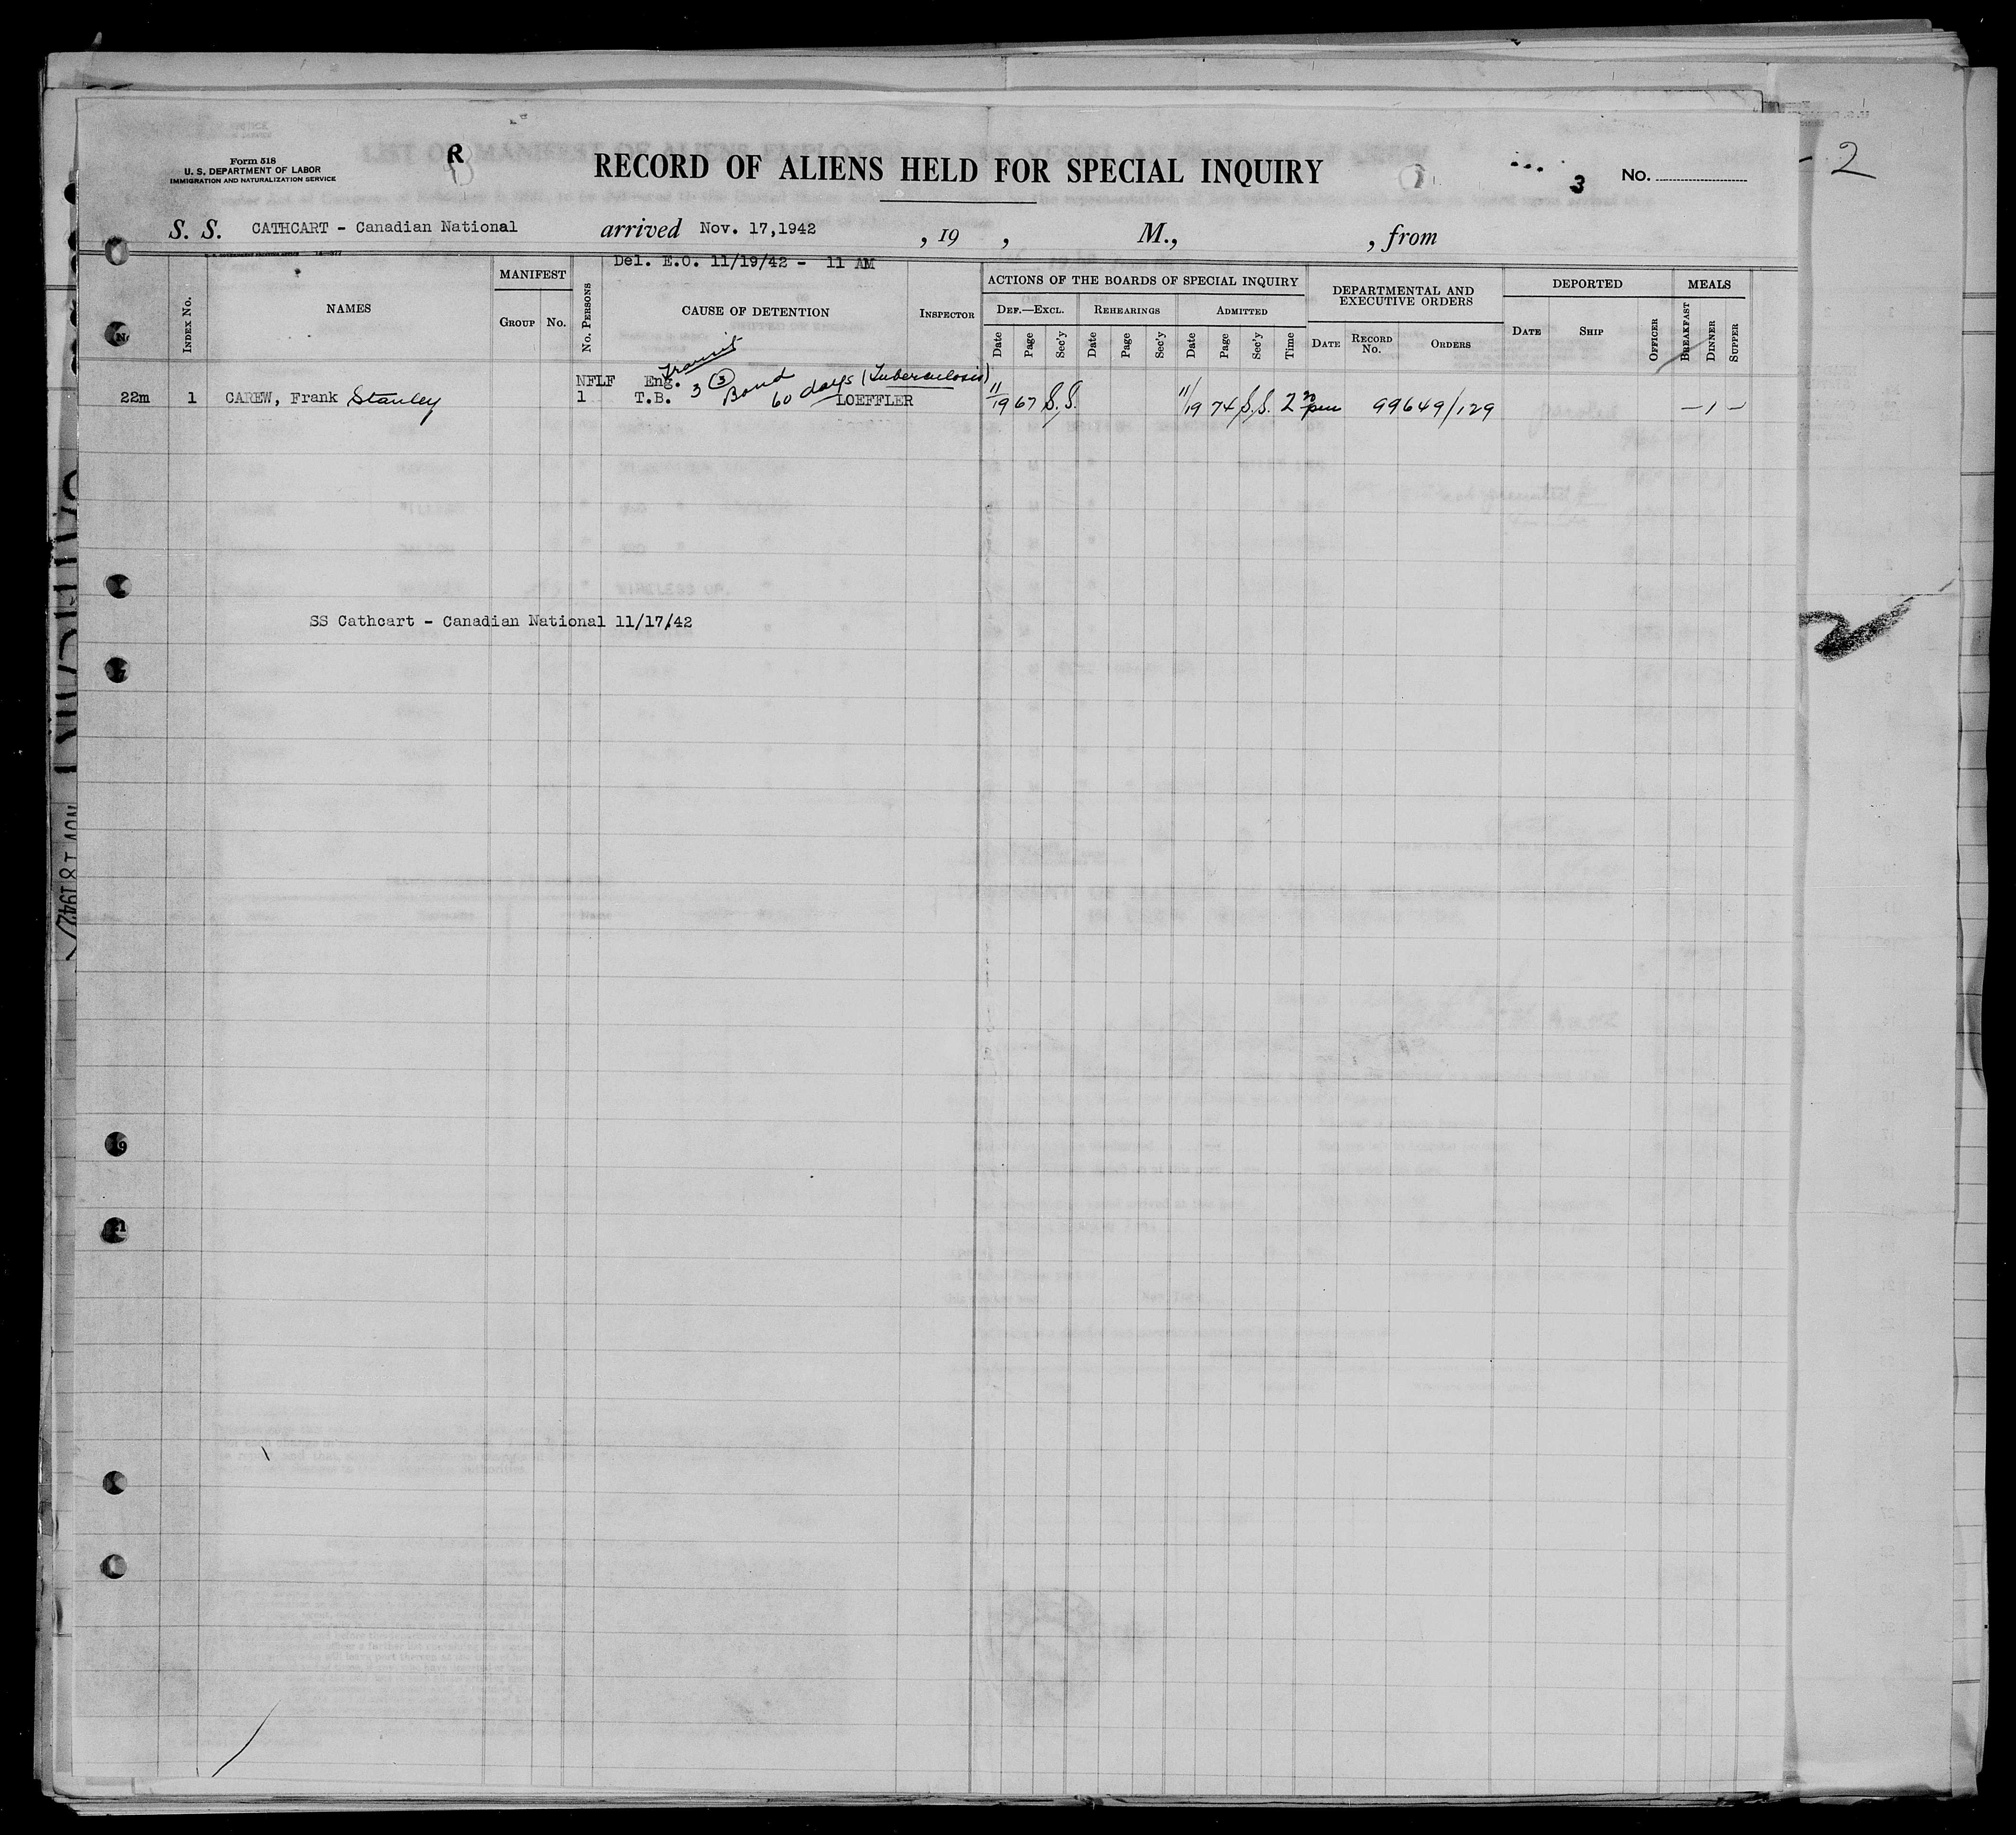 Form 518
U. S. DEPARTMENT OF LABOR
IMMIGRATION AND NATURALIZATION SERVICE
R
RECORD OF ALIENS HELD FOR SPECIAL INQUIRY
3 No.
- 2
S. S. CATHCART - Canadian National arrived Nov. 17,1942 , 19 , M., , from
Del. E.O. 11/19/42 - 11 AM
Index No.
NAMES
MANIFEST
Group No.
No. Persons
CAUSE OF DETENTION
Inspector
ACTIONS OF THE BOARDS OF SPECIAL INQUIRY
Def.—Excl. Rehearings Admitted
Date Page Sec'y Date Page Sec'y Date Page Sec'y Time
DEPARTMENTAL AND EXECUTIVE ORDERS
Date Record No. Orders
DEPORTED
Date Ship Officer
MEALS
Breakfast Dinner Supper
Transit
NFLF Eng. 3 (3) Bond 60 days (Tuberculosis)
22m 1 CAREW, Frank Stanley 1 T.B. LOEFFLER 11/19 67 S.S. 11/19 74 S.S. 2 20 pm 99649/129 — 1 —
SS Cathcart - Canadian National 11/17/42
NOV 18 1942